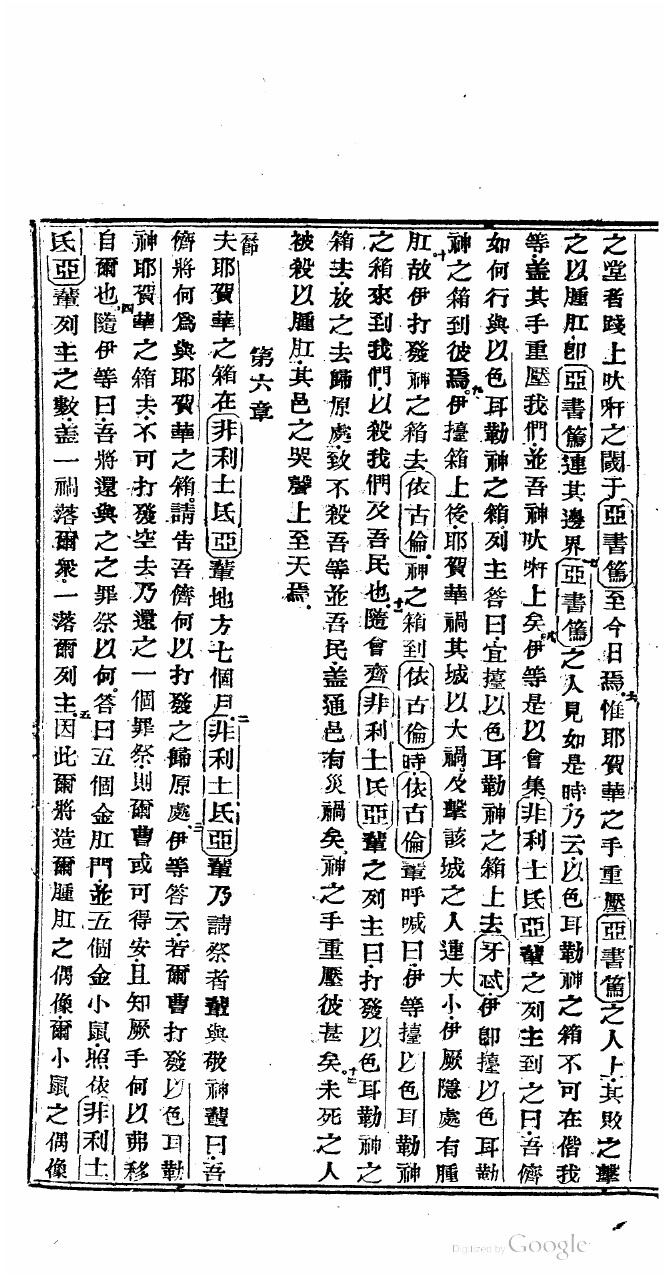 之堂者踐上吠唎之閾于亞書篤至今日焉惟耶賀華之手重壓亞書篤之人上其敗之擊
之以腫肛卽亞書篤連其邊界亞書篤之人見如是時乃云以色耳勒神之箱不可在偕我
等蓋其手重壓我們並吾神吠唎上矣伊等是以會集非利士氏亞輩之列主到之曰吾儕
如何行與以色耳勒神之箱列主答曰宜擡以色耳勒神之箱上去牙忒伊卽擡以色耳勒
神之箱到彼焉伊擡箱上後耶賀華禍其城以大禍及擊該城之人連大小伊厥隱處有腫
肛故伊打發神之箱去依古倫神之箱到依古倫時依古倫輩呼喊曰伊等擡以色耳勒神
之箱來到我們以殺我們及吾民也隨會齊非利士氏亞輩之列主曰打發以色耳勒神之
箱去放之去歸原處致不殺吾等並吾民蓋通邑有災禍矣神之手重壓彼甚矣未死之人
被殺以腫肛其邑之哭聲上至天焉
第六章
節
夫耶賀華之箱在非利士氏亞輩地方七個月二非利士氏亞輩乃請祭者輩與敬神輩曰吾
儕將何爲與耶賀華之箱請告吾儕何以打發之歸原處三伊等答云若爾曹打發以色耳勒
神耶賀華之箱去不可打發空去乃還之一個罪祭則爾曹或可得安且知厥手何以弗移
自爾也四隨伊等曰吾將還與之之罪祭以何答曰五個金肛門並五個金小鼠照依非利士
氏亞輩列主之數蓋一禍落爾衆一落爾列主五因此爾將造爾腫肛之偶像爾小鼠之偶像
Digitized by Google